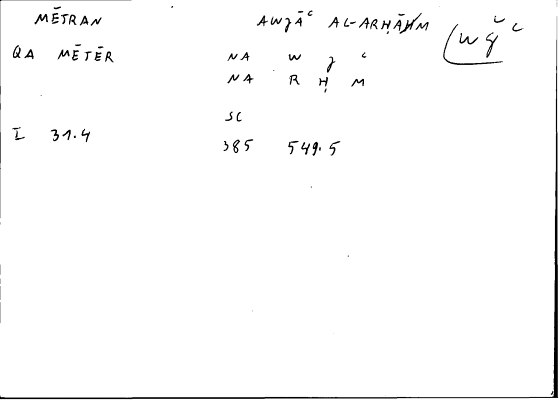 MĒTRAN AWJĀʿ AL-ARḤĀM
wǧʿ
QA MĒTĒR NA W J ʿ
NA R Ḥ M
SC
I 31.4 385 549.5